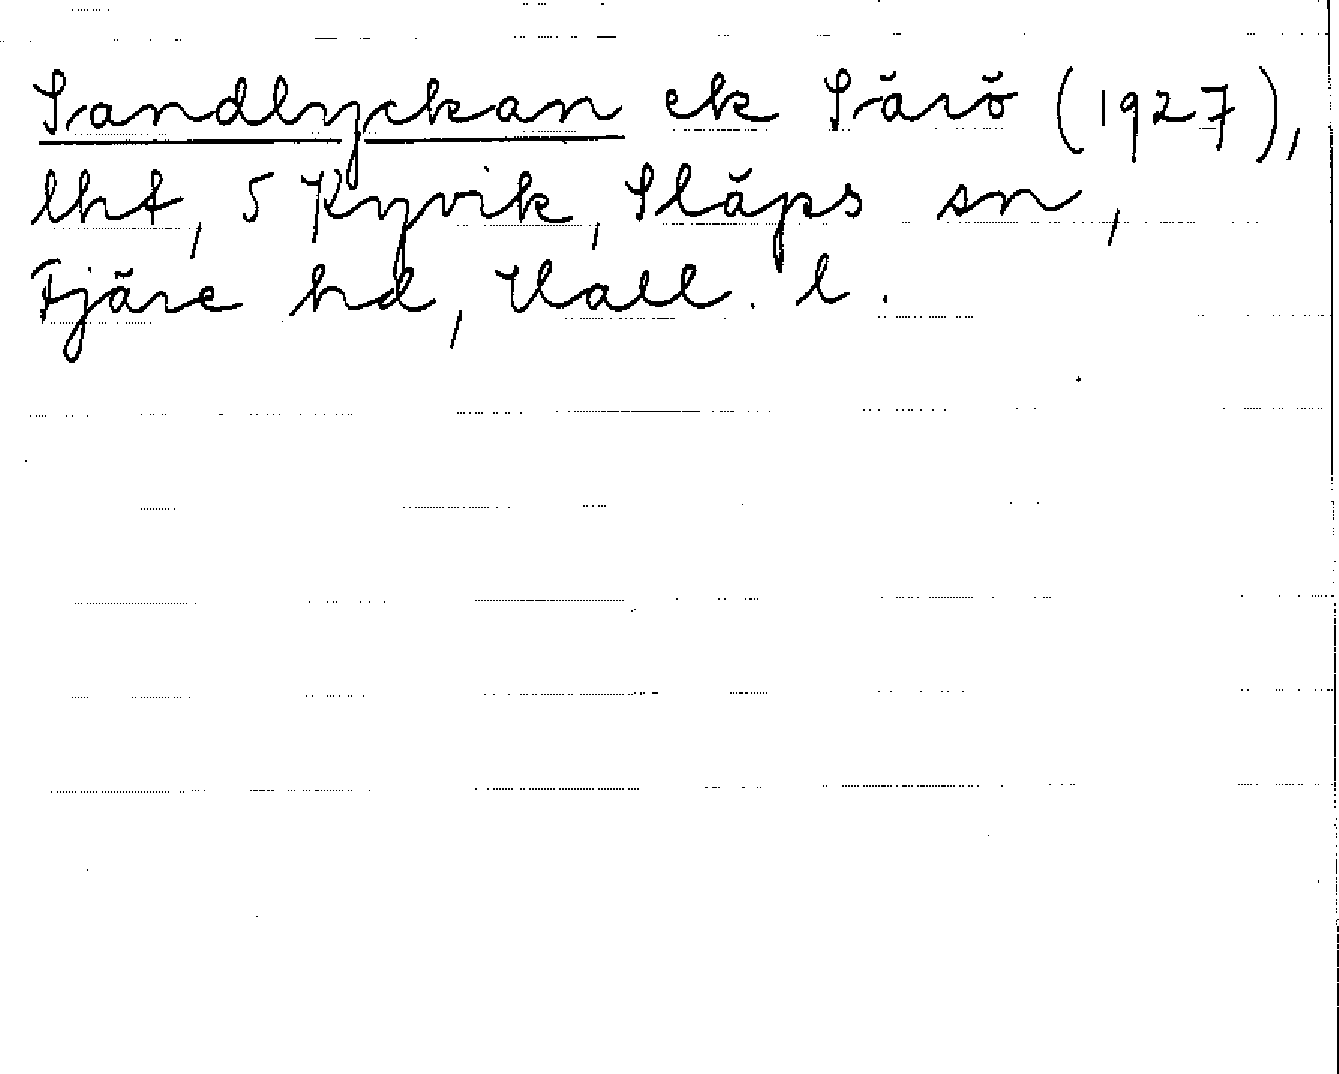 Sandlyckan ek Särö (1927),
lht, 5 Kyvik, Släps sn,
Fjäre hd, Hall. l.